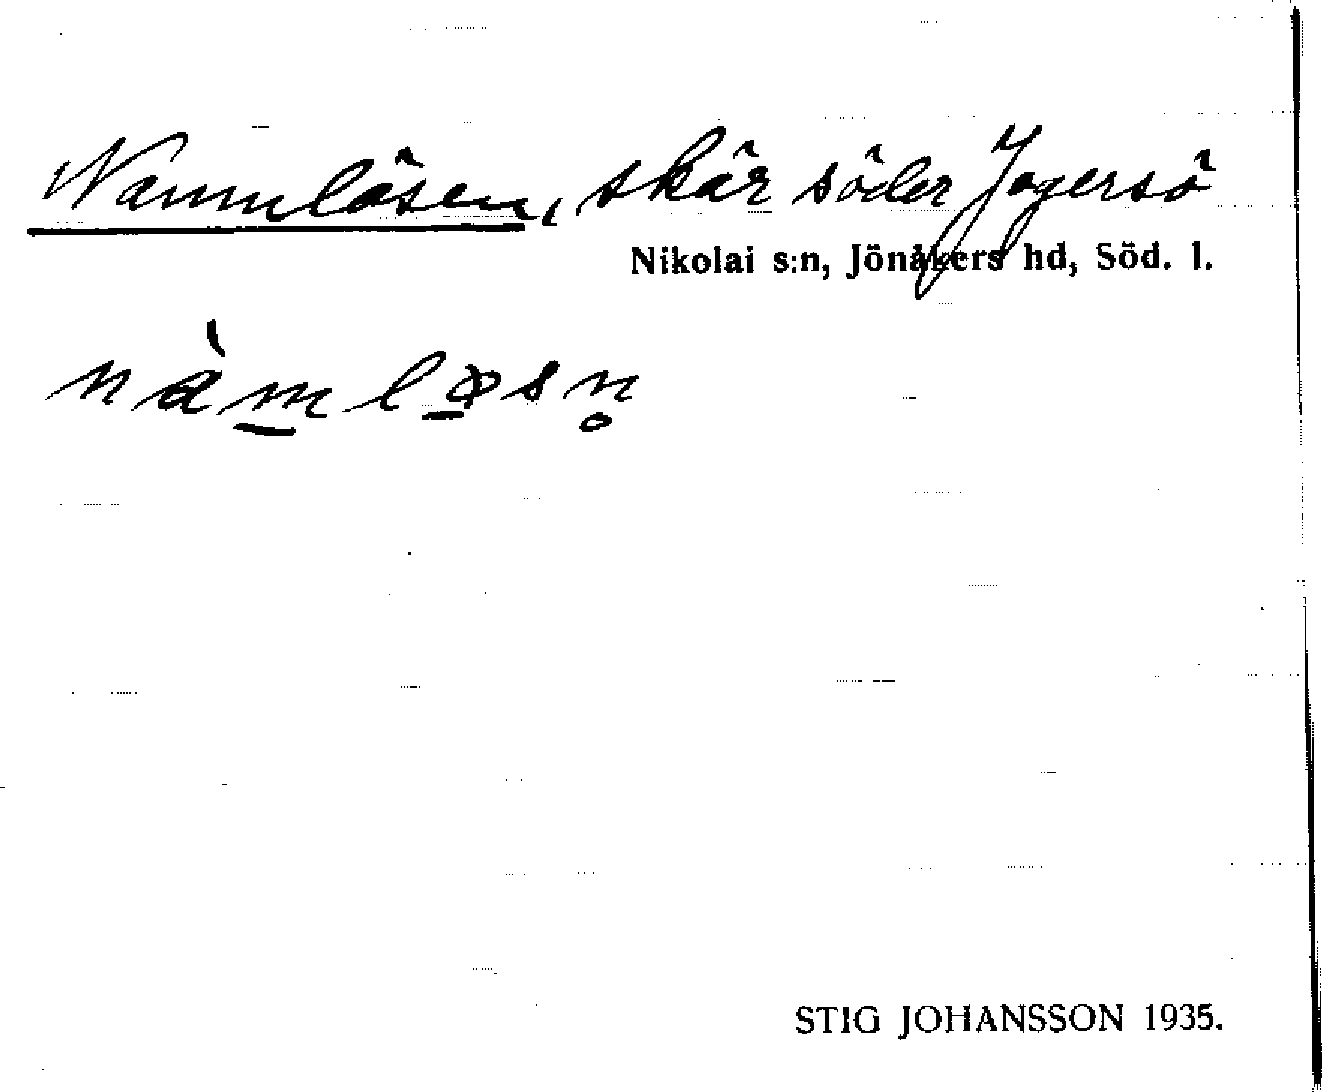 Namnlösen, skär söder Jogersö
Nikolai s:n, Jönåkers hd, Söd. l.
nàm̲lø̲sn̥
STIG JOHANSSON 1935.